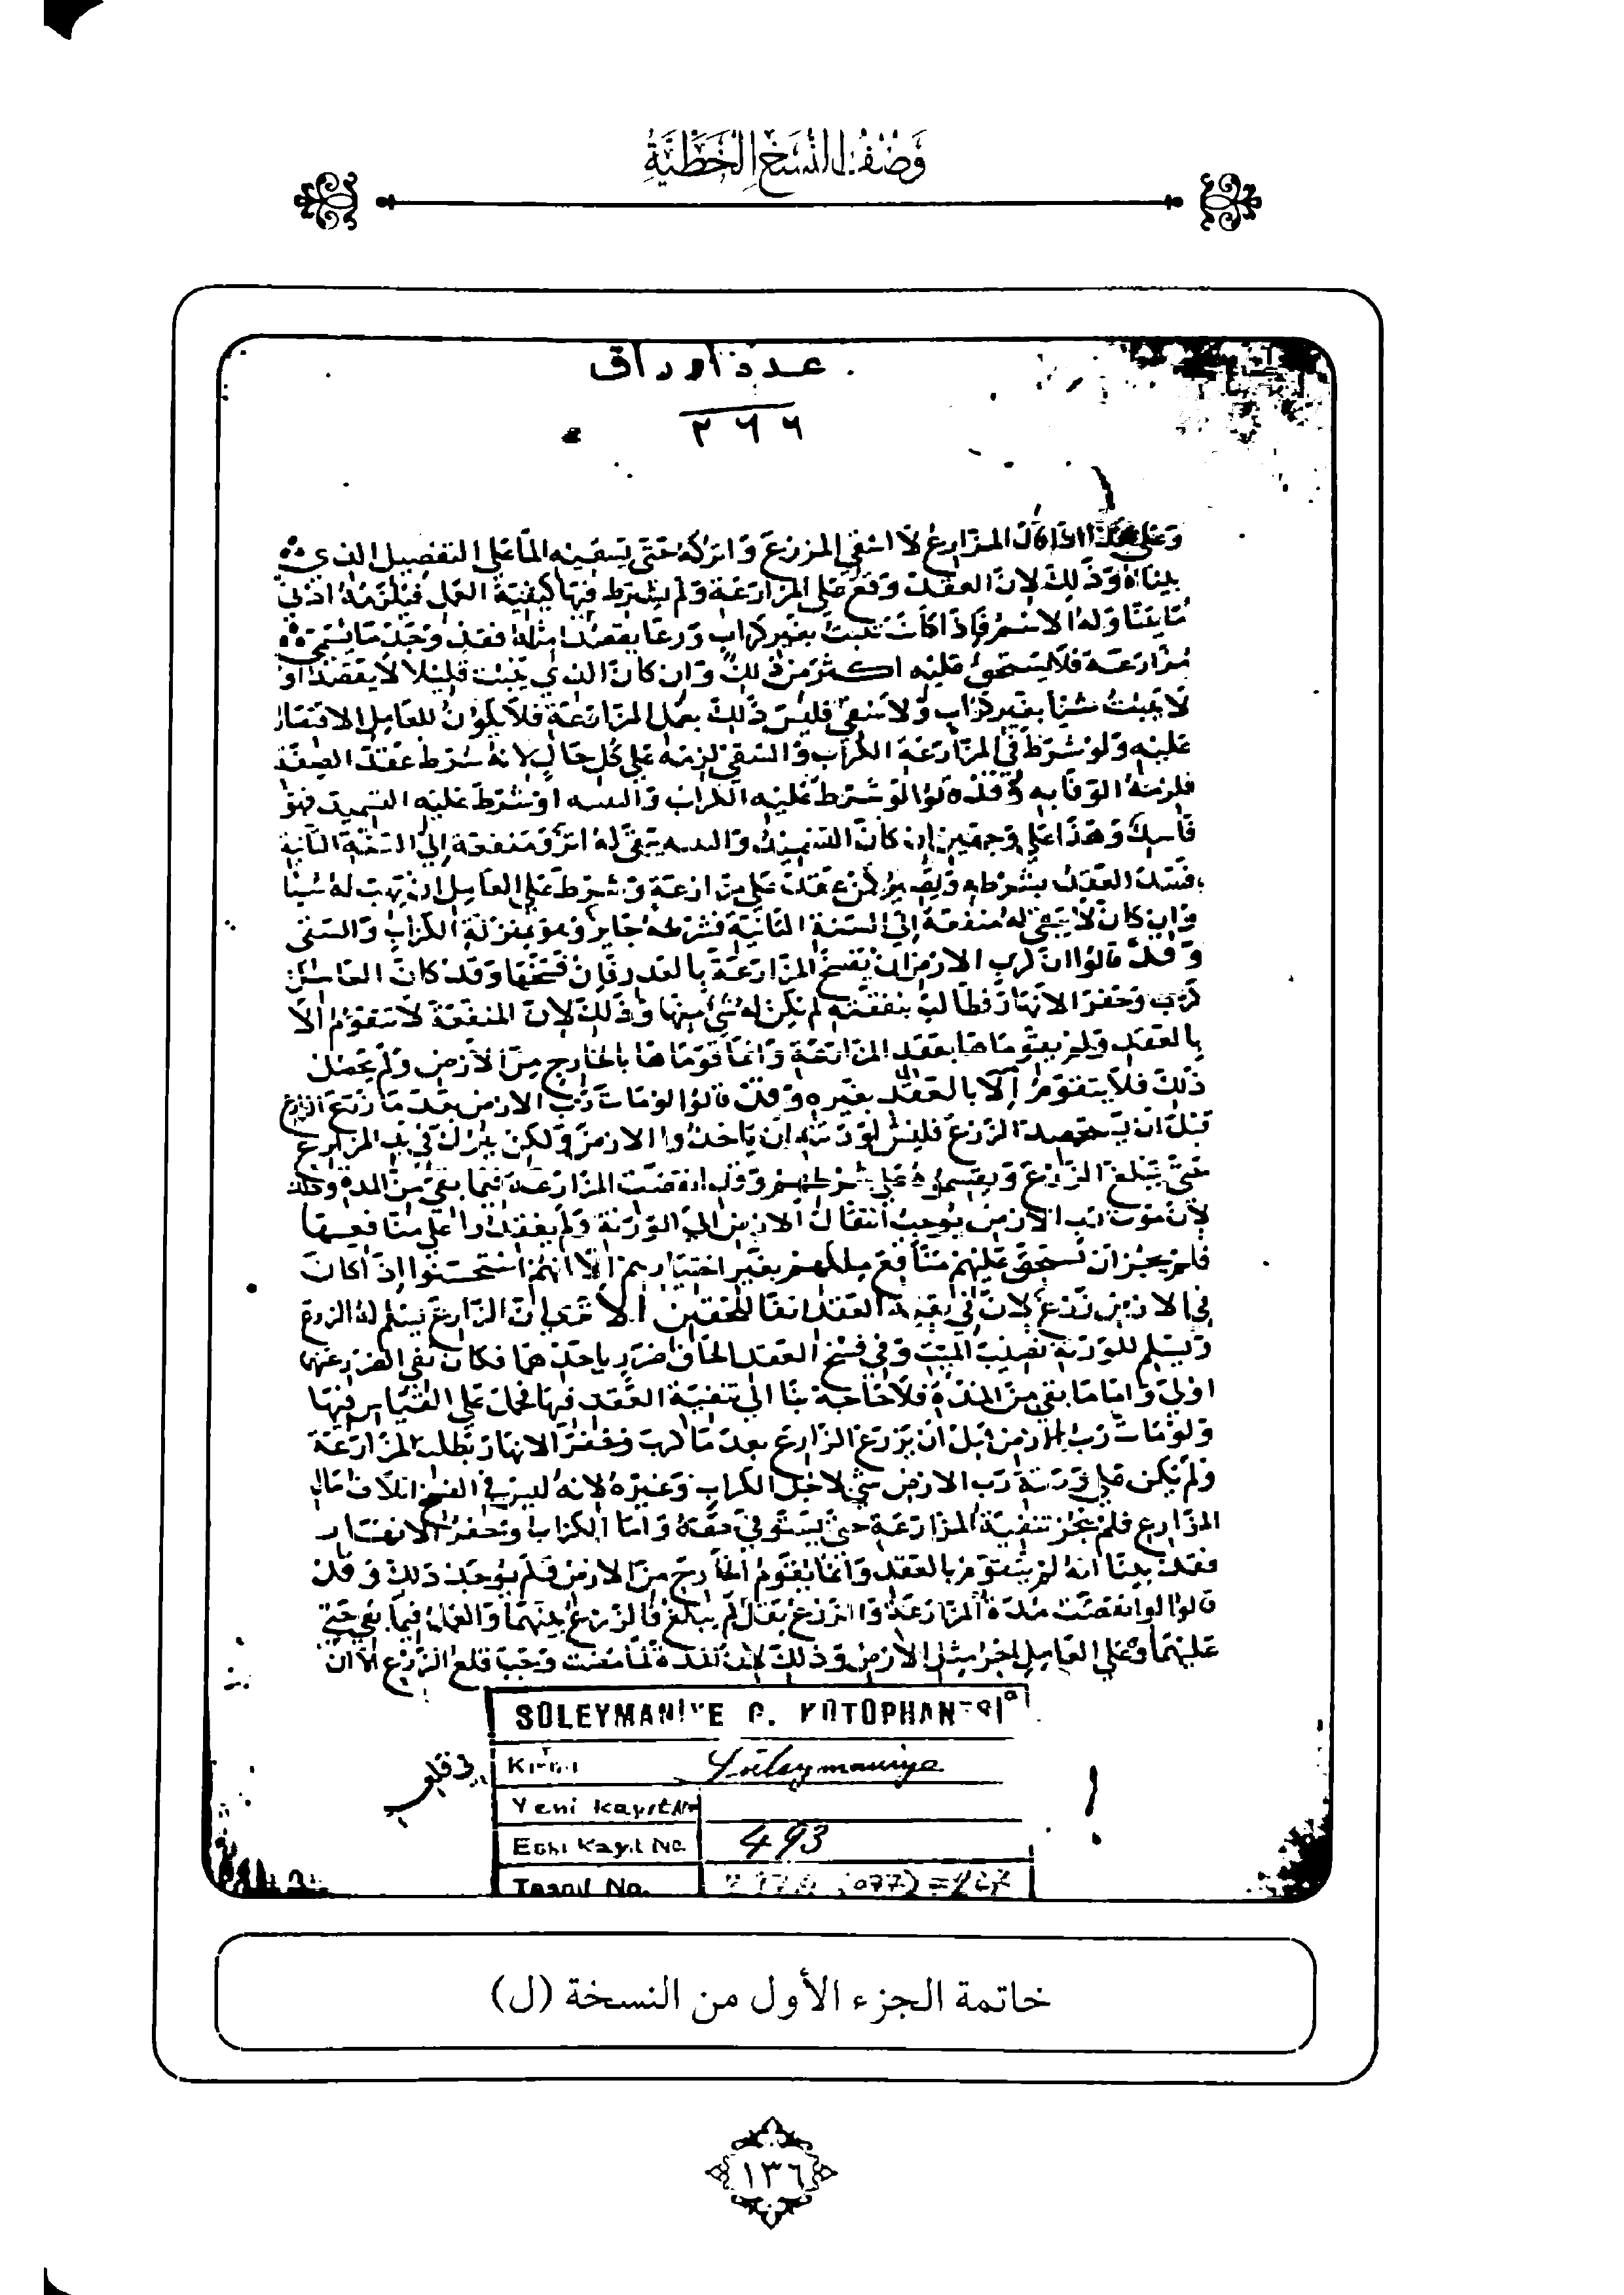 وَصْفُ النُّسَخِ الْخَطِّيَّةِ
عدد أوراق
٢٦٦
وعلى هذا اذا قال المزارع لا اسقي المزرع واتركه حتى يسقيه الما على التفصيل الذي
بيناه وذلك لان العقد وقع على المزارعة ولم يشرط فيها كيفية العمل فيلزمه ادنى
ما يتناوله الاسم فاذا كانت تنبت بغير كراب زرعا يقصد مثله فقد وجد ما يسمى
مزارعة فلا يستحق عليه اكثر من ذلك وان كان الذي ينبت قليلا لا يقصد او
لا ينبت شيا بغير كراب ولا سقي فليس ذلك بعمل المزارعة فلا يكون للعامل الاقتصار
عليه ولو شرط في المزارعة الكراب والسقي لزمه على كل حال لانه شرط عقد الصفة
فلزمه الوفا به وقد قالوا لو شرط عليه الكراب او شرط عليه التسميد فهو
فاسد وهذا على وجهين ان كان التسميد يبقى له اثر ومنفعة الى السنة الثانية
فسد العقد بشرطه ويصير كمن عقد على مزارعة وشرط على العامل ان يهب له شيا
وان كان لا يبقى له منفعة الى السنة الثانية فشرطه جايز وهو بمنزلة الكراب والسقي
وقد قالوا ان لرب الارض ان يفسخ المزارعة بالعذر فان فسخها وقد كان العامل
كرب وحفر الانهار فطالب بنفقته لم يكن له شي منها وذلك لان المنفعة لا تتقوم الا
بالعقد ولم يقوماها بعقد المزارعة وانما قوماها بالخارج من الارض ولم يحصل
ذلك فلا يتقوم الا بالعقد بغيره وقد قالوا لو مات رب الارض بعد ما زرع الزرع
قبل ان يحصد الزرع فليس لورثته ان ياخذوا الارض ولكن يترك في يد المزارع
حتى يبلغ الزرع ويقسموه على شرطهم وقد انقضت المزارعة فيما بقي من المدة وذلك
لان موت رب الارض يوجب انتقال الارض الى الورثة ولم يعقدوا على منافعها
فلم يجز ان تستحق عليهم منافع ملكهم بغير اختيارهم الا انهم استحسنوا اذا كان
في الارض زرع لان في بقية العقد ايفا للحقين الا ترى ان الزارع يسلم له الزرع
ويسلم للورثة نصيب الميت وفي فسخ العقد الحاق ضرر باحدهما فكان
اولى واما ما بقي من المدة فلا حاجة بنا الى تبقية العقد فيها فحمل على القياس فيها
ولو مات رب الارض قبل ان يزرع الزارع بعد ما كرب وحفر الانهار بطلت المزارعة
ولم يكن على ورثة رب الارض شي لاجل الكراب وغيره لانه ليس في الفسخ اتلاف مال
المزارع فلم يجز تبقية المزارعة حتى يستوفي حقه واما الكراب وحفر الانهار
فقد بينا انه لم يتقوم بالعقد وانما يقوم الخارج من الارض فلم يوجد ذلك وقد
قالوا لو انقضت مدة المزارعة والزرع بقل لم يبلغ فالزرع بينهما والعمل فيما بقي حتى
عليهما وعلى العامل اجر مثل الارض وذلك لان المدة لما مضت وجب قلع الزرع الا ان
في قلع
SÜLEYMANİYE G. KÜTÜPHANESİ
Kısmı Süleymaniye
Yeni Kayıt No
Eski Kayıt No. 493
Tasnif No.
خاتمة الجزء الأول من النسخة (ل)
١٣٦